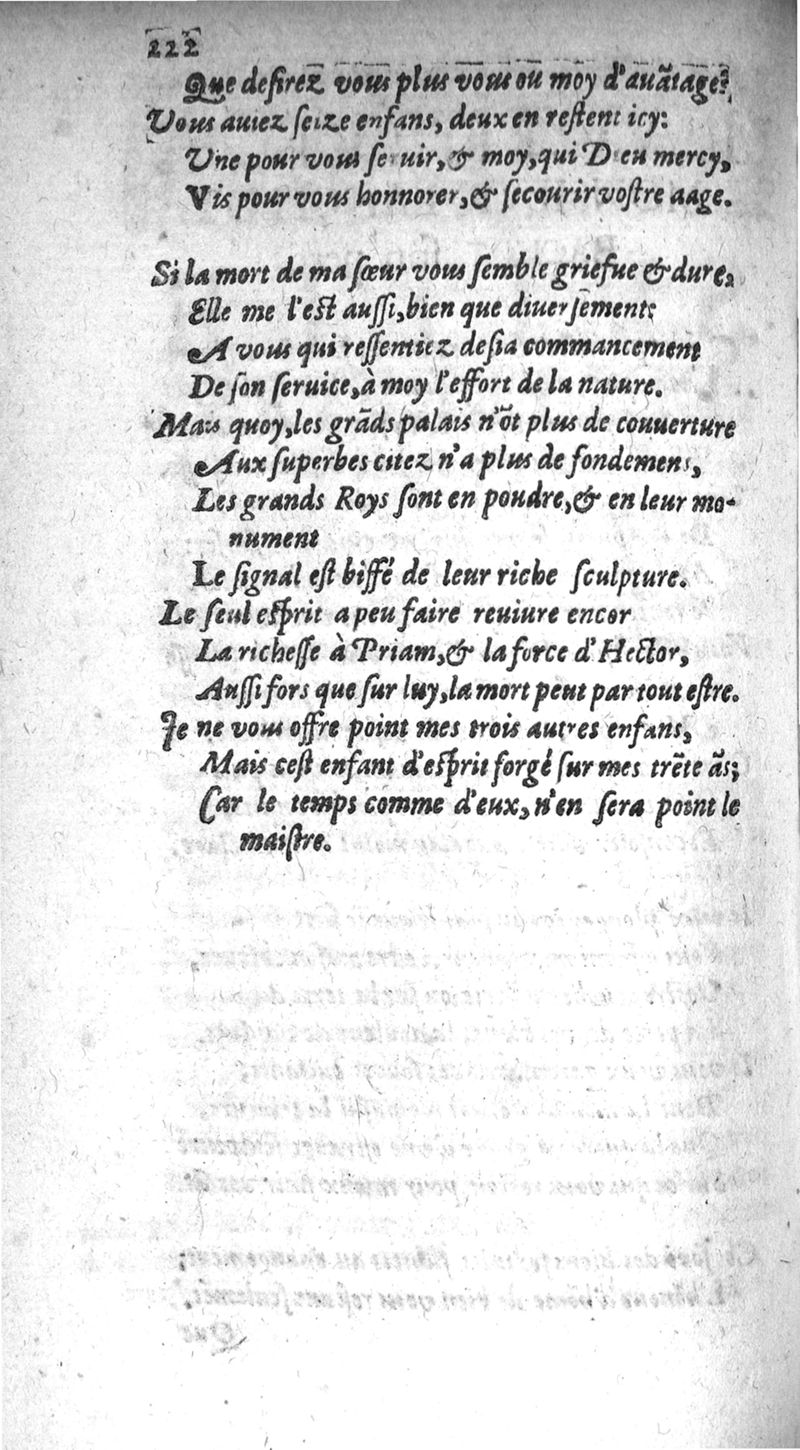 222
Que desirez vous plus vous ou moy d'auãtage?
Vous auiez seize enfans, deux en restent icy:
Vne pour vous seruir, & moy, qui Dieu mercy,
Vis pour vous honnorer, & secourir vostre aage.
Si la mort de ma sœur vous semble griefue & dure,
Elle me l'est aussi, bien que diuersement:
A vous qui ressentiez desia commancement
De son seruice, à moy l'effort de la nature.
Mais quoy, les grãds palais n'õt plus de couuerture
Aux superbes citez n'a plus de fondemens,
Les grands Roys sont en poudre, & en leur mo-
nument
Le signal est biffé de leur riche sculpture.
Le seul esprit a peu faire reuiure encor
La richesse à Priam, & la force d'Hector,
Aussi fors que sur luy, la mort peut par tout estre.
Je ne vous offre point mes trois autres enfans,
Mais cest enfant d'esprit forgé sur mes trẽte ãs;
Car le temps comme d'eux, n'en sera point le
maistre.